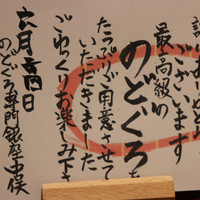 ございます
最高級の
のどぐろを
たっぷりご用意させて
いただきました
ごゆっくりお楽しみ下さい
六月吉日
のどぐろ専門銀座中俣